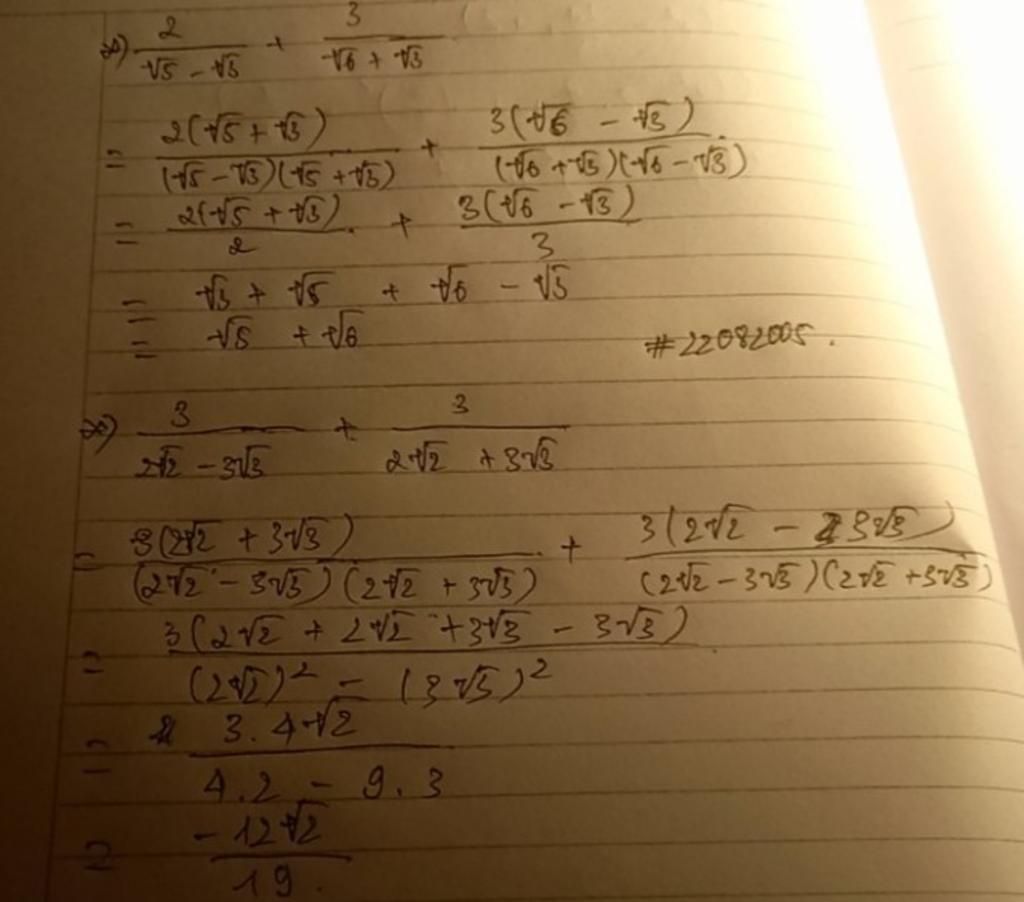 *) 2/(√5 - √3) + 3/(√6 + √3)
= 2(√5 + √3)/((√5 - √3)(√5 + √3)) + 3(√6 - √3)/((√6 + √3)(√6 - √3))
= 2(√5 + √3)/2 + 3(√6 - √3)/3
= √3 + √5 + √6 - √3
= √5 + √6
#22082005.
*) 3/(2√2 - 3√3) + 3/(2√2 + 3√3)
= 3(2√2 + 3√3)/((2√2 - 3√3)(2√2 + 3√3)) + 3(2√2 - 3√3)/((2√2 - 3√3)(2√2 + 3√3))
= 3(2√2 + 2√2 + 3√3 - 3√3)/((2√2)² - (3√3)²)
= 3.4√2/(4.2 - 9.3)
= -12√2/19.